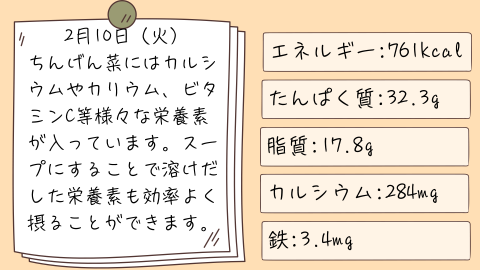 2月10日（火）
ちんげん菜にはカルシ
ウムやカリウム、ビタ
ミンC等様々な栄養素
が入っています。スー
プにすることで溶けだ
した栄養素も効率よく
摂ることができます。
エネルギー:761kcal
たんぱく質:32.3g
脂質:17.8g
カルシウム:284mg
鉄:3.4mg